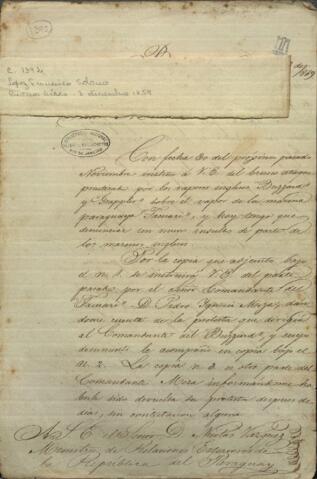 C. 1393
Lopez, Francisco Solano
Buenos Aires - 3 diciembre 1859
Con fecha 30 del próximo pasado
Noviembre instruí á V.E. del
por los vapores ingleses Buzzard
y Grappler sobre el vapor de la marina
paraguaya Tacuarí y hoy tengo que
denunciar un nuevo insulto de parte
de los marinos ingleses.
Por la copia que adjunto bajo
el n. 1. se instruirá V.E. del parte
pasado por el Señor Comandante del
Tacuarí D. Pedro Ignacio Meza, dan
dome cuenta de la protesta que dirigió
al Comandante del Buzzard, y cuyo
documento le acompaño en copia bajo el
N. 2. La copia n. 3 es otro parte del
Comandante Meza informandome que
habia sido devuelta su protesta despues de
dias, sin contestacion alguna.
A S. E. el Señor D. Nicolas Vazquez
Ministro de Relaciones Exteriores de
la Republica del Paraguay